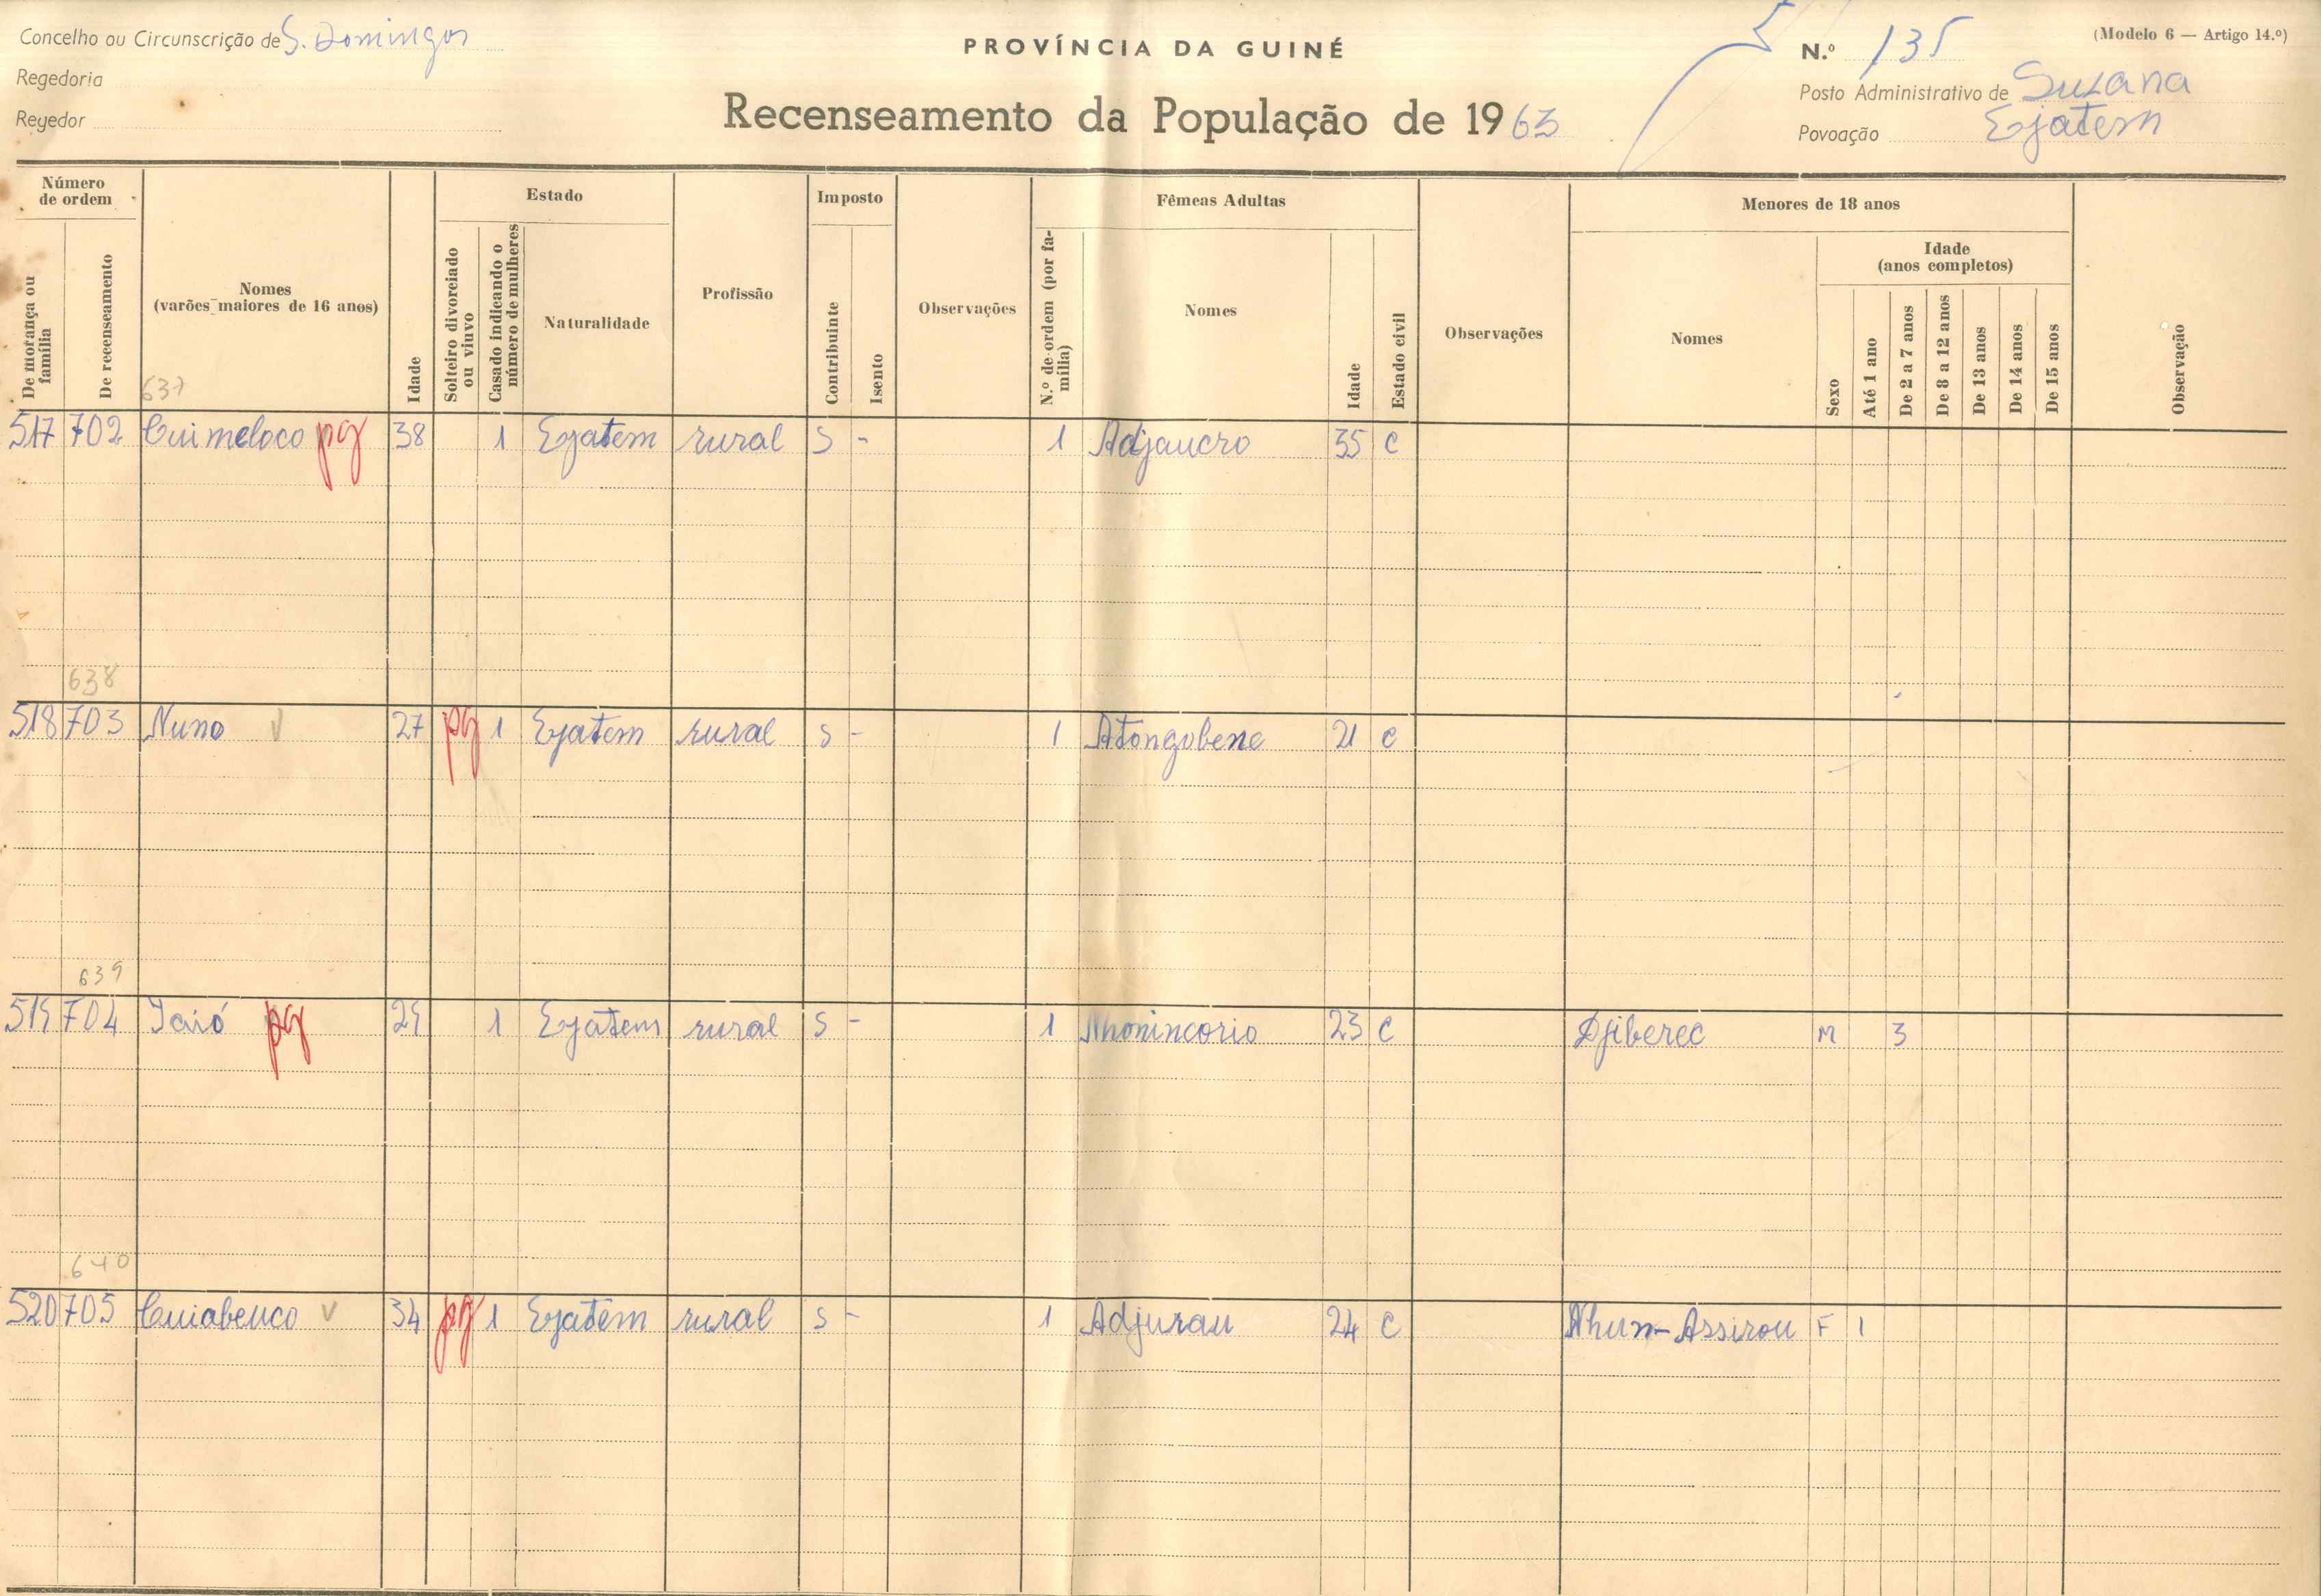 Concelho ou Circunscrição de S. Domingos
PROVÍNCIA DA GUINÉ
N.º 135
(Modelo 6 — Artigo 14.º)
Regedoria
Posto Administrativo de Suzana
Regedor
Recenseamento da População de 1963
Povoação Ejatem
Número de ordem
Estado
Imposto
Fêmeas Adultas
Menores de 18 anos
De morança ou família
De recenseamento
Nomes (varões maiores de 16 anos)
Idade
Solteiro divorciado ou viuvo
Casado indicando o número de mulheres
Naturalidade
Profissão
Contribuinte
Isento
Observações
N.º de ordem (por família)
Nomes
Idade
Estado civil
Observações
Nomes
Sexo
Idade (anos completos)
Até 1 ano
De 2 a 7 anos
De 8 a 12 anos
De 13 anos
De 14 anos
De 15 anos
Observação
637
517 702 Cuimeloco pg 38 1 Ejatem rural S - 1 Adjaucro 35 C
638
518 703 Nuno V 27 pg 1 Ejatem rural S - 1 Atongobene 21 C
639
519 704 Iaió pg 29 1 Ejatem rural S - 1 Nhonincorio 23 C Djiberec M 3
640
520 705 Cuiabeuco V 34 pg 1 Ejatem rural S - 1 Adjurau 24 C Nhun-Assirou F 1